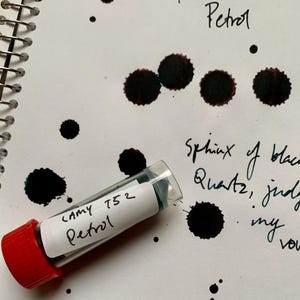 Petrol
Sphinx of blac
Quartz, judg
my
vow
LAMY T52
Petrol